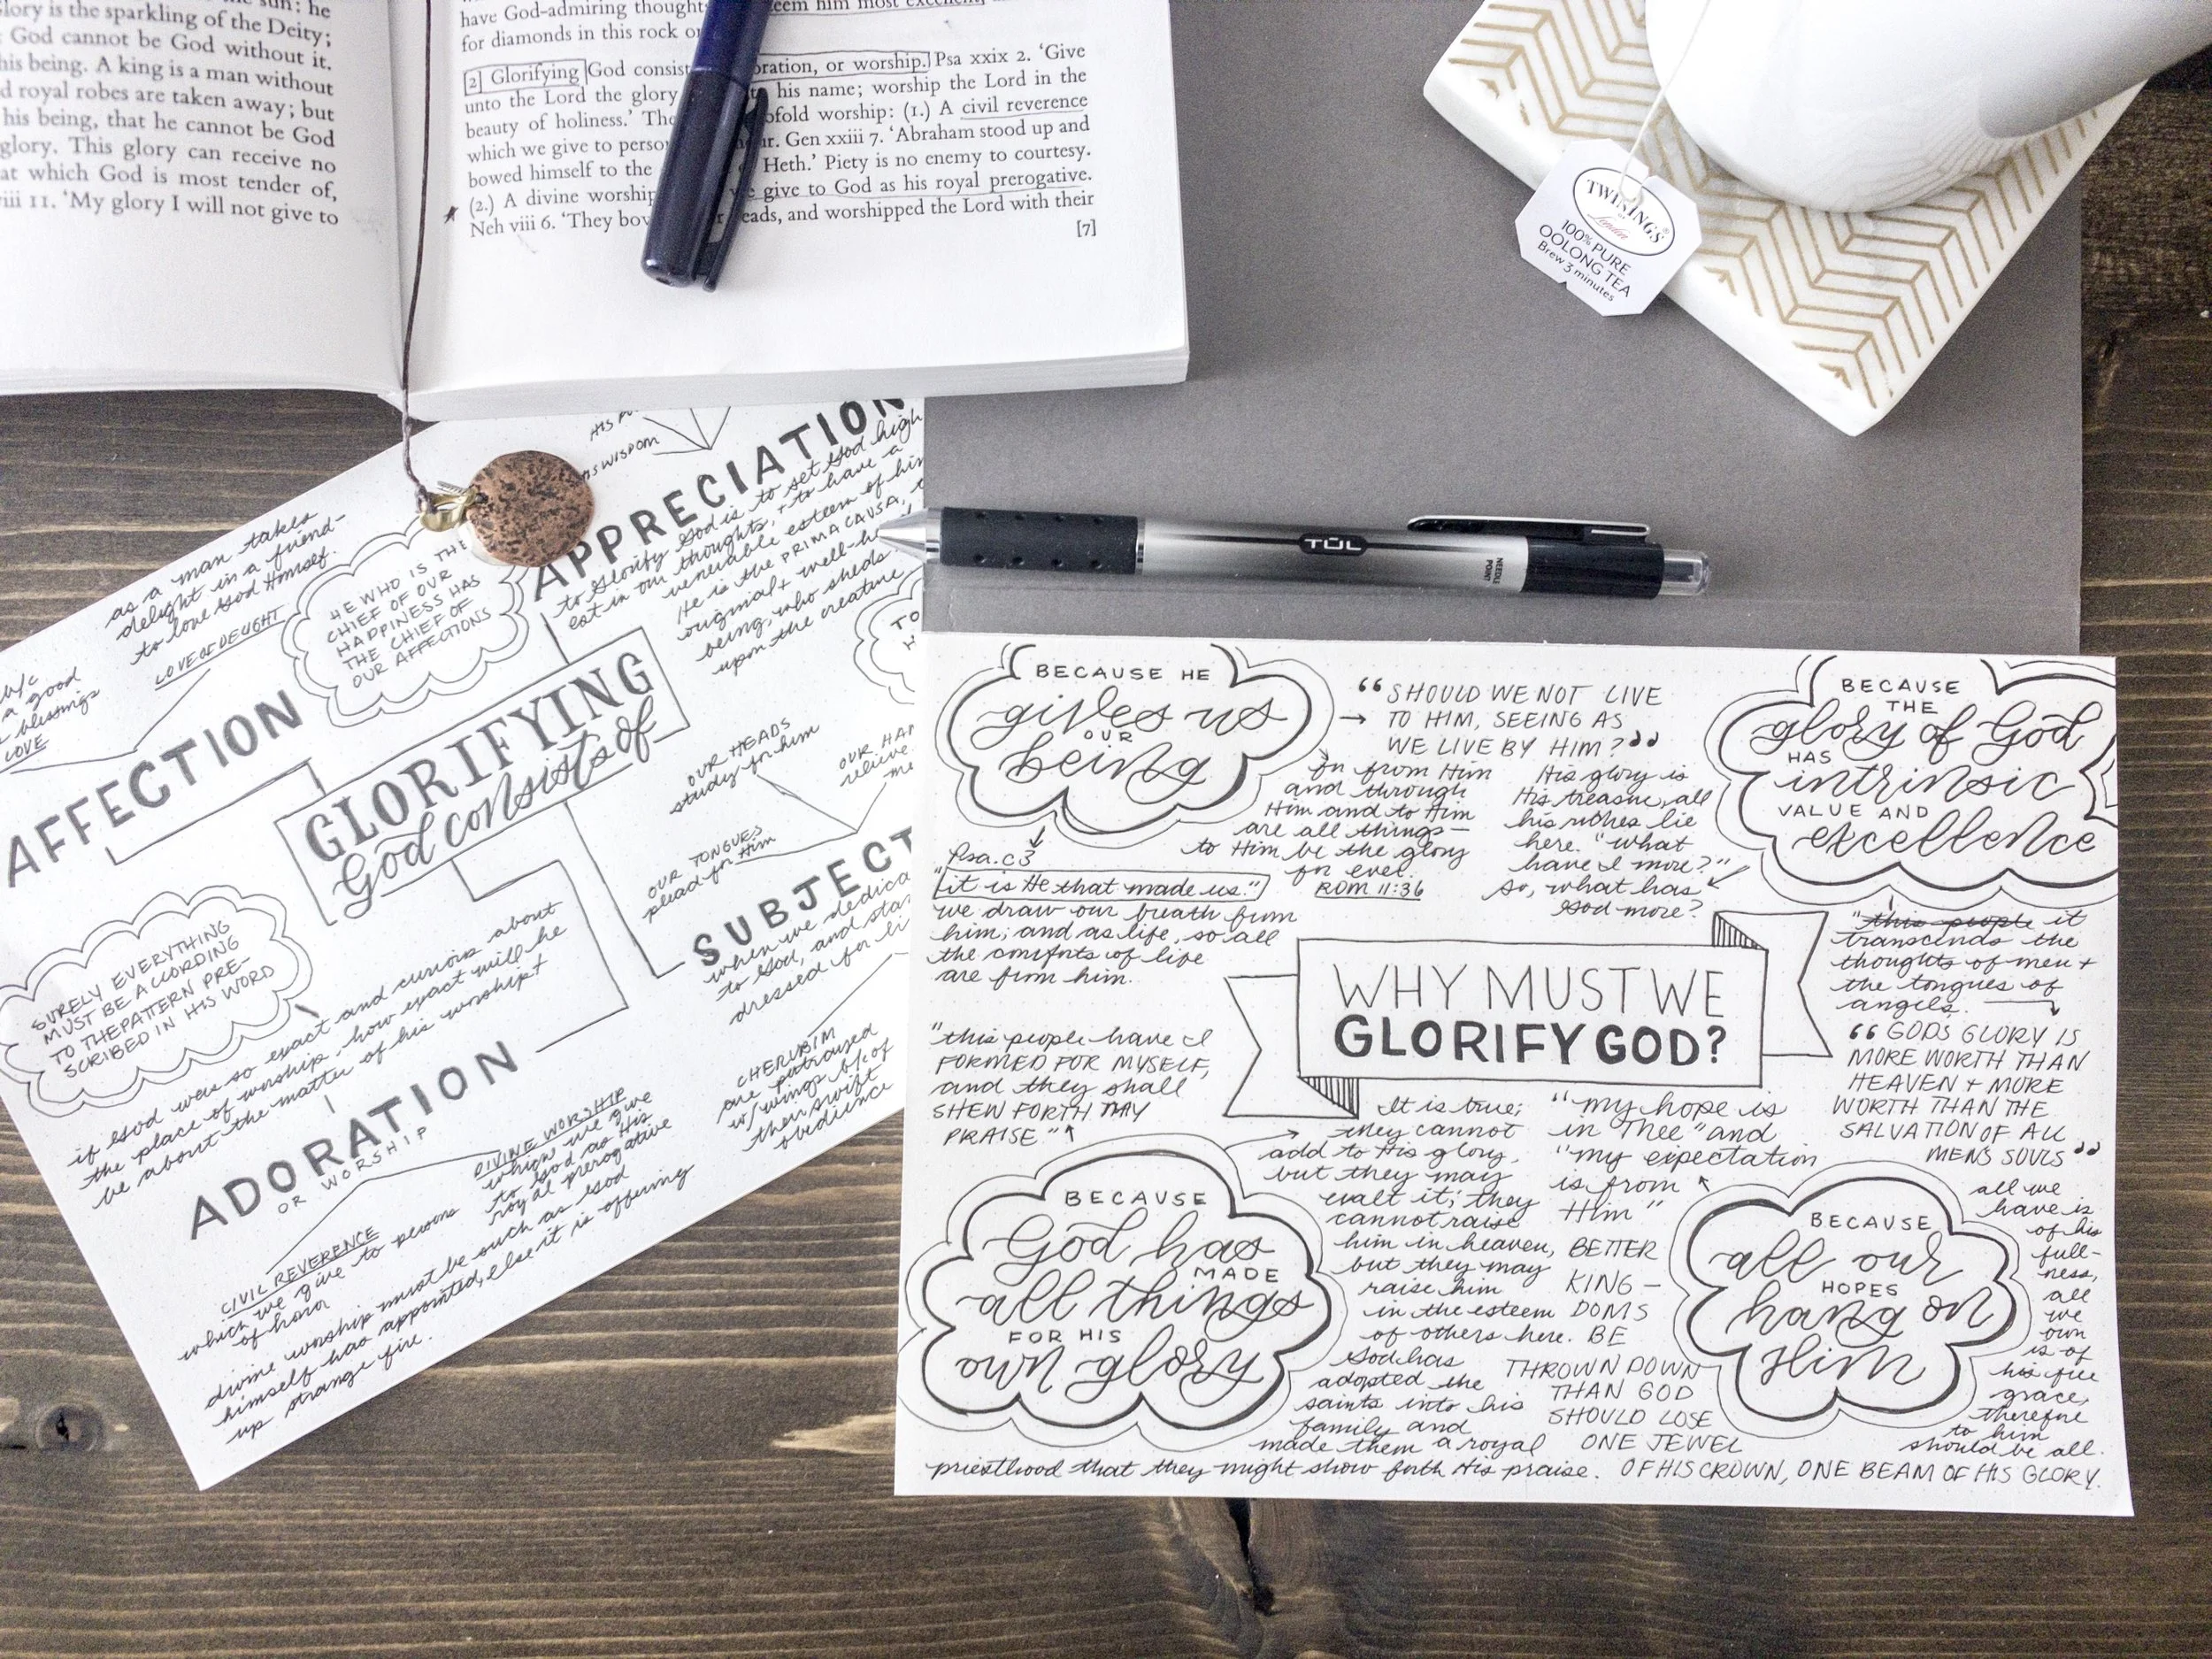 sun: he
glory is the sparkling of the Deity;
God cannot be God without it.
his being. A king is a man without
d royal robes are taken away; but
his being, that he cannot be God
glory. This glory can receive no
at which God is most tender of,
iii 11. 'My glory I will not give to
have God-admiring thoughts
eem him most excellent,
for diamonds in this rock
[2] Glorifying God consist
oration, or worship. Psa xxix 2. 'Give
unto the Lord the glory
his name; worship the Lord in the
beauty of holiness.' The
ofold worship: (1.) A civil reverence
which we give to perso
ur. Gen xxiii 7. 'Abraham stood up and
bowed himself to the
Heth.' Piety is no enemy to courtesy.
(2.) A divine worship
we give to God as his royal prerogative.
Neh viii 6. 'They bow
eads, and worshipped the Lord with their
[7]
TWININGS
of
London
100% PURE
OOLONG TEA
Brew 3 minutes
TUL
NEEDLE
POINT
HIS WISDOM
APPRECIATION
to glorify God is to set God high
est in our thoughts, + to have a
venerable esteem of him
He is the PRIMA CAUSA,
original + well-h
being, who sheds
upon the creature
as a man takes
delight in a friend-
to love God Himself.
LOVE OF DELIGHT
HE WHO IS THE
CHIEF OF OUR
HAPPINESS HAS
THE CHIEF OF
OUR AFFECTIONS
b/c
a good
blessings
LOVE
AFFECTION
GLORIFYING
God consists of
OUR HEADS
study for him
OUR HAN
relieve
me
OUR TONGUES
plead for Him
SUBJECT
when we dedica
to God, and sta
dressed for
CHERUBIM
are portrayed
w/ wings b/c of
their swift
obedience
SURELY EVERYTHING
MUST BE ACCORDING
TO THE PATTERN PRE-
SCRIBED IN HIS WORD
if God was so exact and curious about
the place of worship, how exact will he
be about the matter of his worship?
ADORATION
OR WORSHIP
DIVINE WORSHIP
which we give
to God as His
royal prerogative
CIVIL REVERENCE
which we give to persons
of honor
divine worship must be such as God
himself has appointed, else it is offering
up strange fire.
BECAUSE HE
gives us
OUR
being
"SHOULD WE NOT LIVE
TO HIM, SEEING AS
WE LIVE BY HIM?"
for from Him
and through
Him and to Him
are all things—
to Him be the glory
for ever.
ROM 11:36
His glory is
His treasure, all
his riches lie
here. "what
have I more?"
so, what has
God more?
BECAUSE
THE
glory of God
HAS
intrinsic
VALUE AND
excellence
Psa. c3
"it is He that made us."
we draw our breath from
him; and as life, so all
the comforts of life
are from him.
WHY MUST WE
GLORIFY GOD?
"this people it
transcends the
thoughts of men +
the tongues of
angels.
"GODS GLORY IS
MORE WORTH THAN
HEAVEN + MORE
WORTH THAN THE
SALVATION OF ALL
MEN'S SOULS"
"this people have I
FORMED FOR MYSELF,
and they shall
SHEW FORTH MY
PRAISE"
BECAUSE
God has
MADE
all things
FOR HIS
own glory
It is true;
they cannot
add to His glory,
but they may
exalt it; they
cannot raise
him in heaven,
but they may
raise him
in the esteem
of others here.
God has
adopted the
saints into his
family and
made them a royal
priesthood that they might show forth His praise.
"my hope is
in Thee" and
"my expectation
is from
Him"
BETTER
KING-
DOMS
BE
THROWN DOWN
THAN GOD
SHOULD LOSE
ONE JEWEL
OF HIS CROWN, ONE BEAM OF HIS GLORY.
BECAUSE
all our
HOPES
hang on
Him
all we
have is
of his
full-
ness,
all
we
own
is of
his free
grace,
therefore
to him
should be all.